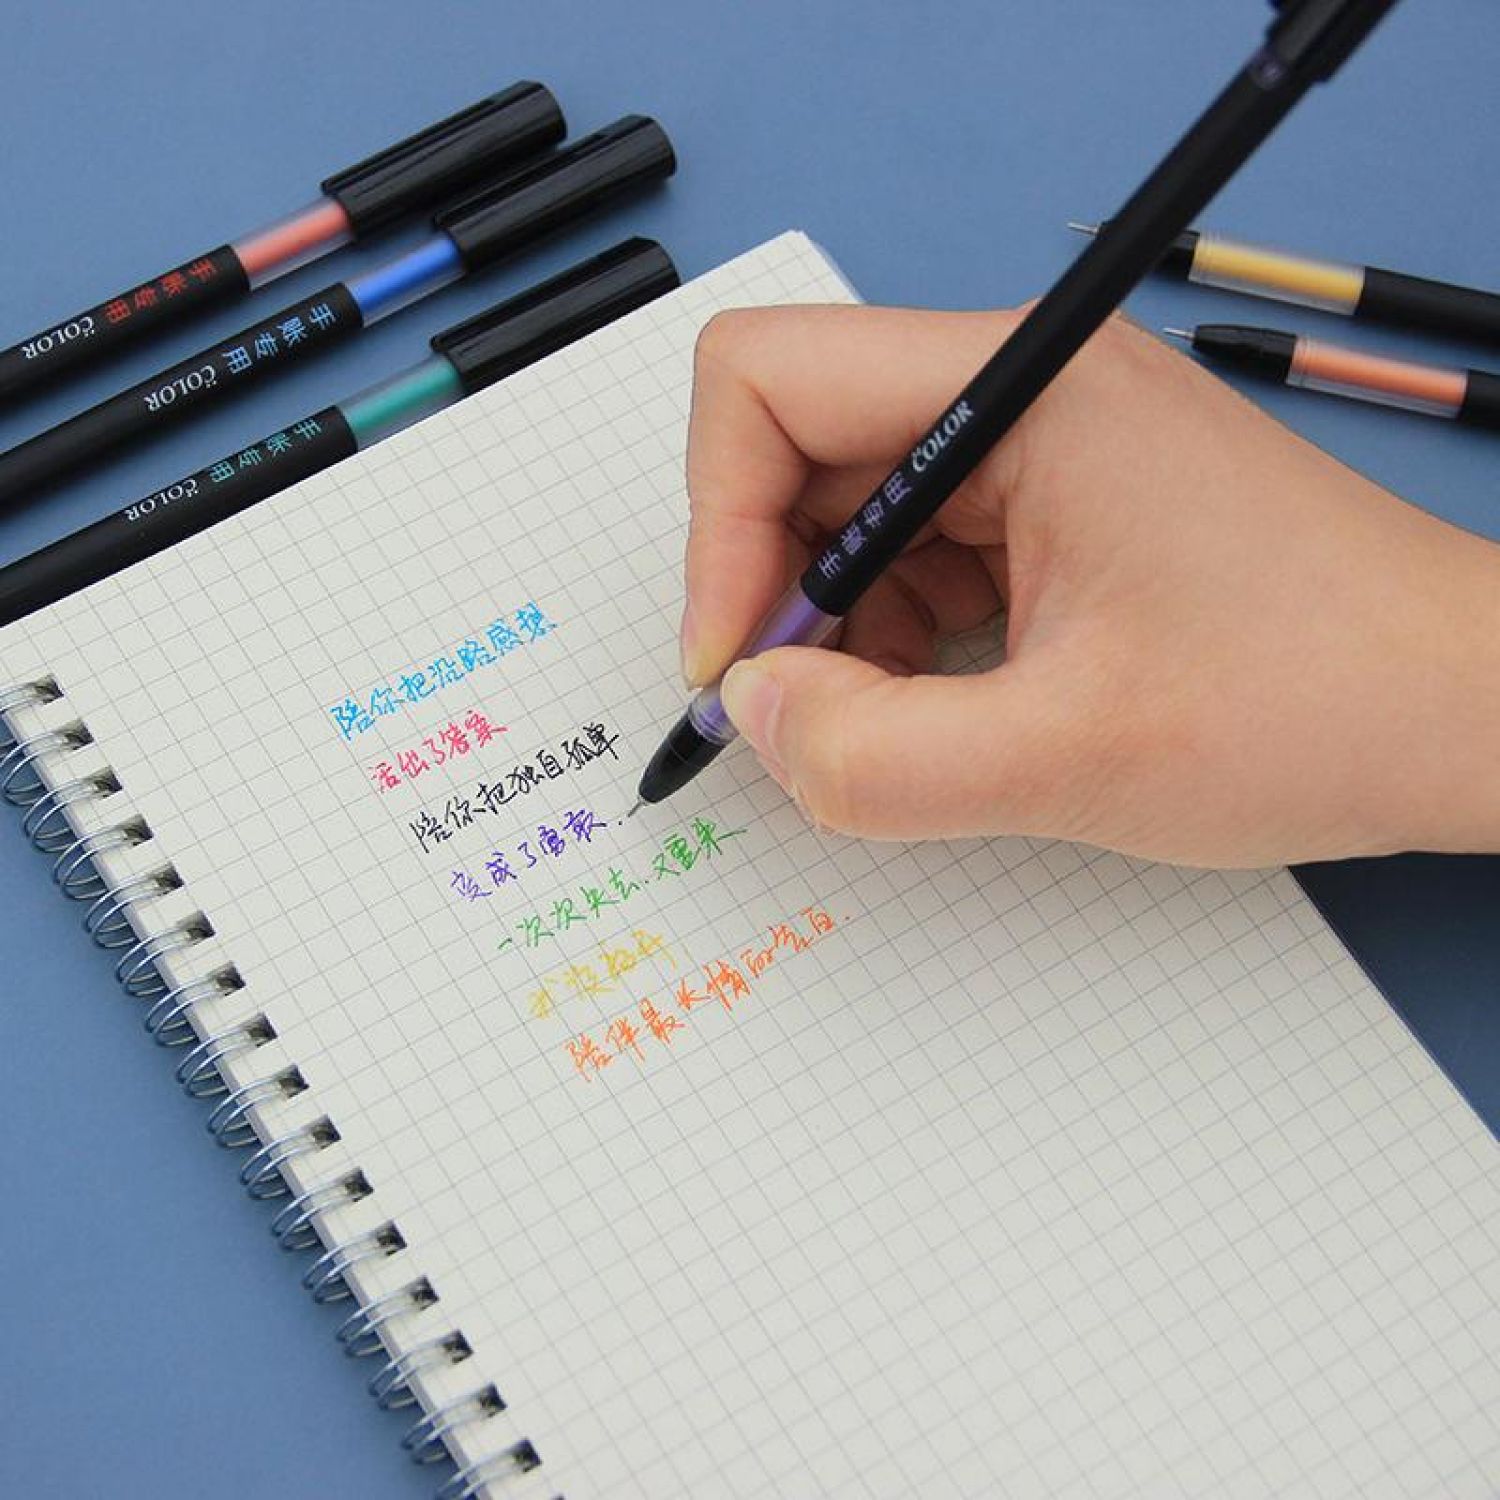 手帐专用 COLOR
手帐专用 COLOR
手帐专用 COLOR
手账专用 COLOR
陪你把沿路感想
活出了答案
陪你把独自孤单
变成了勇敢.
一次次失去.又重来
我没离开
陪伴最长情的告白.